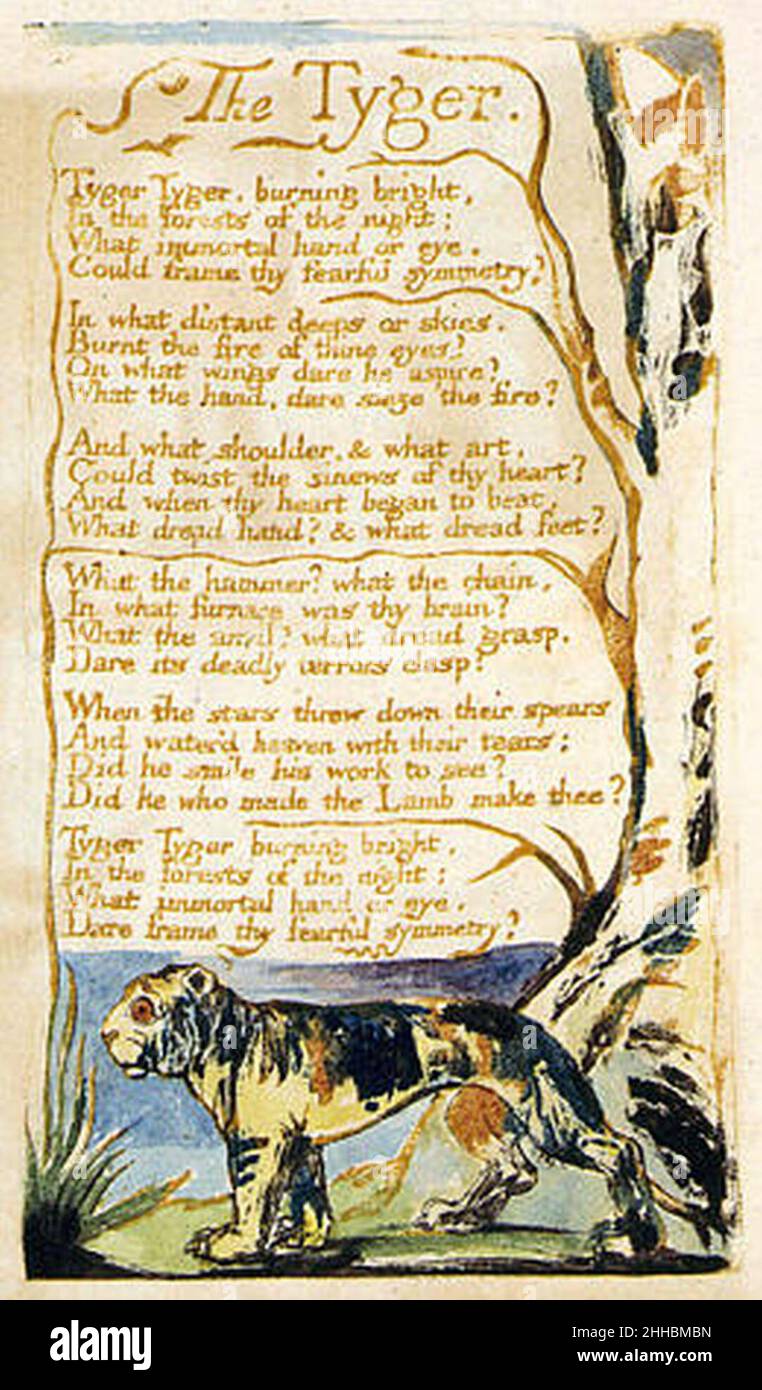 The Tyger.
Tyger Tyger. burning bright,
In the forests of the night:
What immortal hand or eye.
Could frame thy fearful symmetry?
In what distant deeps or skies.
Burnt the fire of thine eyes?
On what wings dare he aspire?
What the hand, dare sieze the fire?
And what shoulder, & what art,
Could twist the sinews of thy heart?
And when thy heart began to beat,
What dread hand? & what dread feet?
What the hammer? what the chain,
In what furnace was thy brain?
What the anvil? what dread grasp.
Dare its deadly terrors clasp?
When the stars threw down their spears
And water'd heaven with their tears:
Did he smile his work to see?
Did he who made the Lamb make thee?
Tyger Tyger burning bright,
In the forests of the night:
What immortal hand or eye.
Dare frame thy fearful symmetry?
alamy
alamy
Image ID: 2HHBMBN
www.alamy.com